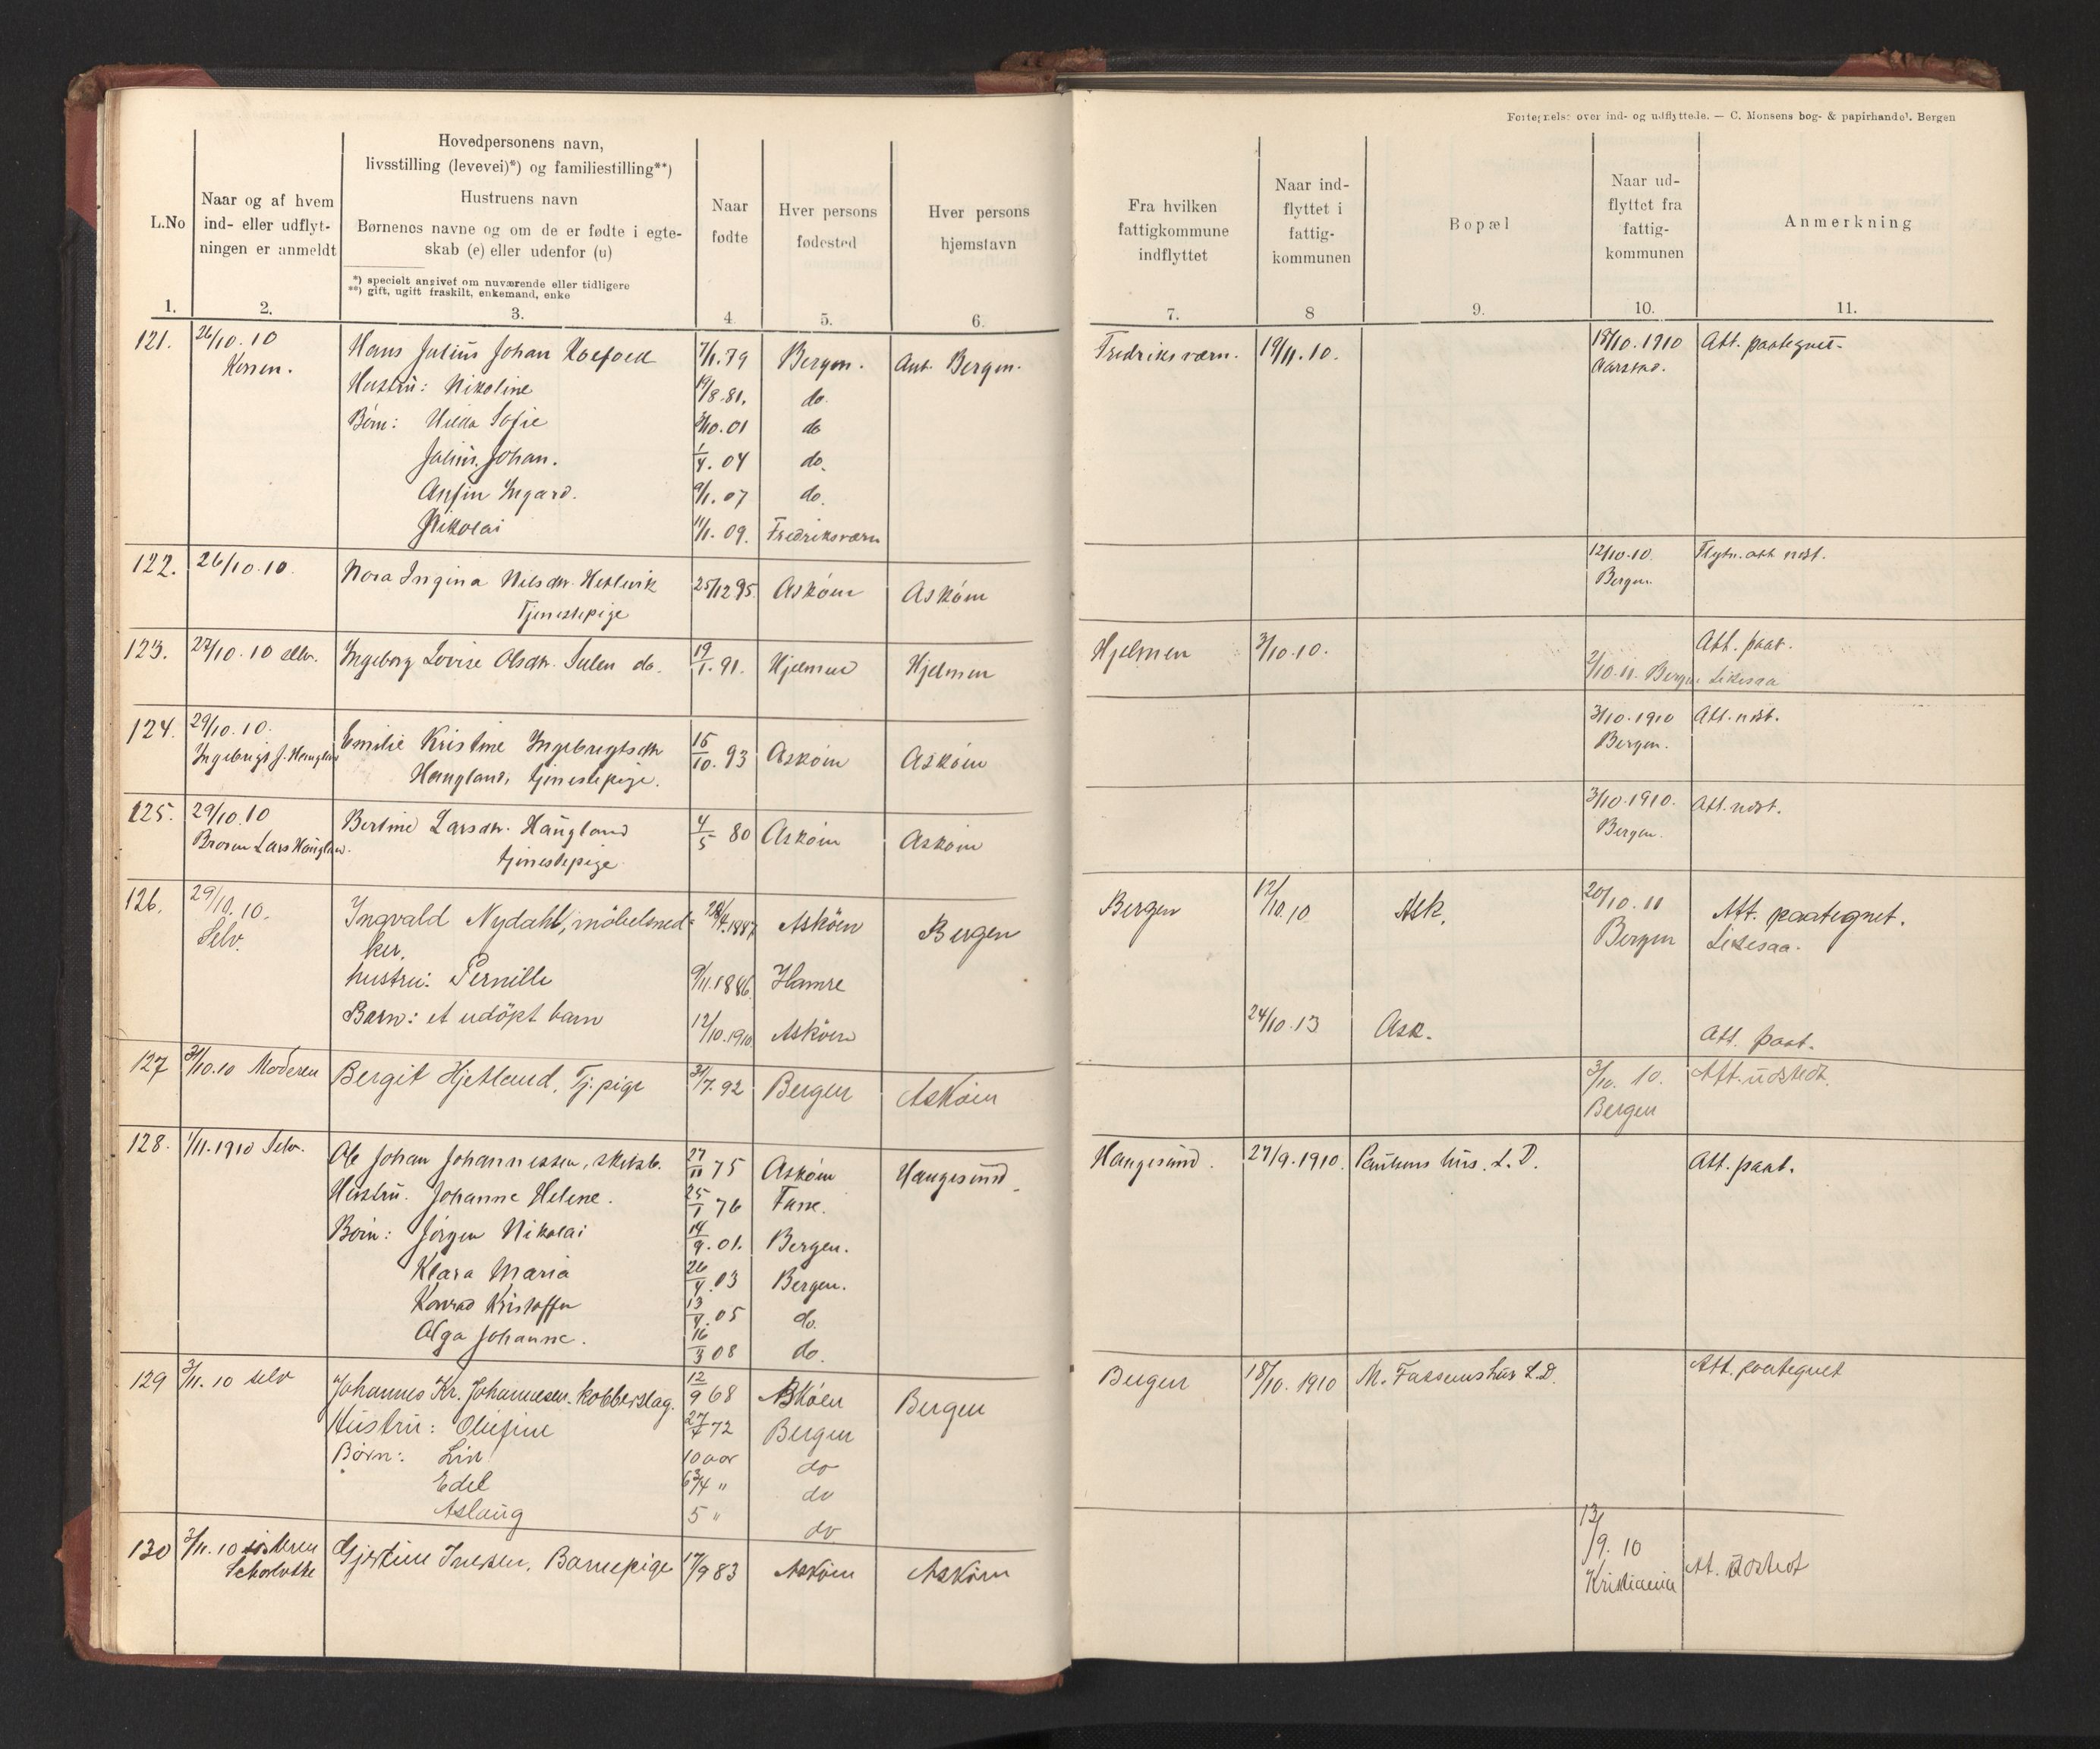 Fortegnelse over ind- og udflyttede. — C. Monsens bog- & papirhandel. Bergen
L.No
1.
Naar og af hvem
ind- eller udflyt-
ningen er anmeldt
2.
Hovedpersonens navn,
livsstilling (levevei)*) og familiestilling**)
Hustruens navn
Børnenes navne og om de er fødte i egte-
skab (e) eller udenfor (u)
*) specielt angivet om nuværende eller tidligere
**) gift, ugift fraskilt, enkemand, enke
3.
Naar
fødte
4
Hver persons
fødested
5.
Hver persons
hjemstavn
6.
Fra hvilken
fattigkommune
indflyttet
7.
Naar ind-
flyttet i
fattig-
kommunen
8
Bopæl
9.
Naar ud-
flyttet fra
fattig-
kommunen
10.
Anmerkning
11.
121. 26/10.10 Hans Julius Johan 7/1.79 Bergen. Ant. Bergen. Fredriksværn. 19/11.10. 18/10.1910 Att. paategnet.
Konen. Hustru: Nikoline 19/8.81. do. Aarstad.
Børn: Hilda Sofie 3/10.01 do
Julius Johan. 1/4.04 do.
Anfin Ingard. 9/1.07 do.
Nikolai 11/1.09. Fredriksværn
122. 26/10.10. Nora Ingina Nilsdtr. Hetlevik 25/12 95. Askøen Askøen 12/10.10. Flytn. att. udst.
Tjenestepige Bergen.
123. 27/10.10 selv. Ingeborg Lovise Olsdtr. Sulen do. 19/1.91. Hjelmen Hjelmen Hjelmen 3/10.10. Att. paat.
2/10.11. Bergen Likesaa
124. 29/10.10. Emilie Kristine Ingebrigtsdtr 15/10.93 Askøen Askøen 3/10.1910 Att. udst.
Ingebrigt J. Haugland Haugland, tjenestepige. Bergen.
125. 29/10.10 Bertine Larsdtr. Haugland 4/5 80 Askøen Askøen 3/10.1910. Att. udst.
Broren Lars Haugland. tjenestepige Bergen.
126. 29/10.10. Ingvald Nydahl, møbelsned- 1887 Askøen Bergen Bergen 12/10.10 Ask. 20/10.11 Att. paategnet.
Selv. ker. Bergen Likesaa.
hustru: Pernille 9/11.1886. Hamre
Barn: et udöpt barn 12/10.1910 Askøen 24/10.13 Ask. Att. paat.
127 31/10.10 Moderen Bergit Hjetland, Tj. pige 31/7.92 Bergen Askøen 3/10.10. Att. udstedt.
Bergen
128. 1/11.1910 Selv. Ole Johan Johannessen, skibsb. 27/11 75 Askøen Haugesund. Haugesund. 27/9.1910. Paulsens hus. L.D. Att. paat.
Hustru. Johanne Helene. 25/1 76 Fane.
Børn: Jörgen Nikolai 14/9.01. Bergen.
Klara Maria 26/4.03 Bergen.
Konrad Kristoffer 13/4.05 do.
Olga Johanne. 16/3 08 do.
129 3/11.10 selv Johannes Kr. Johannesen. kobberslag. 12/9 68 Askøen Bergen Bergen 18/10.1910 M. Fassmers hus L.D. Att. paategnet
Hustru: Olufine 27/7 72 Bergen
Børn: 10 aar do
Edel 6 3/4 " do
Aslaug 5 " do
130 3/11.10 søsteren Gjertine Iversen. Barnepige 17/9 83 Askøen Askøen 13/9.10 Att. udstedt
Kristiania